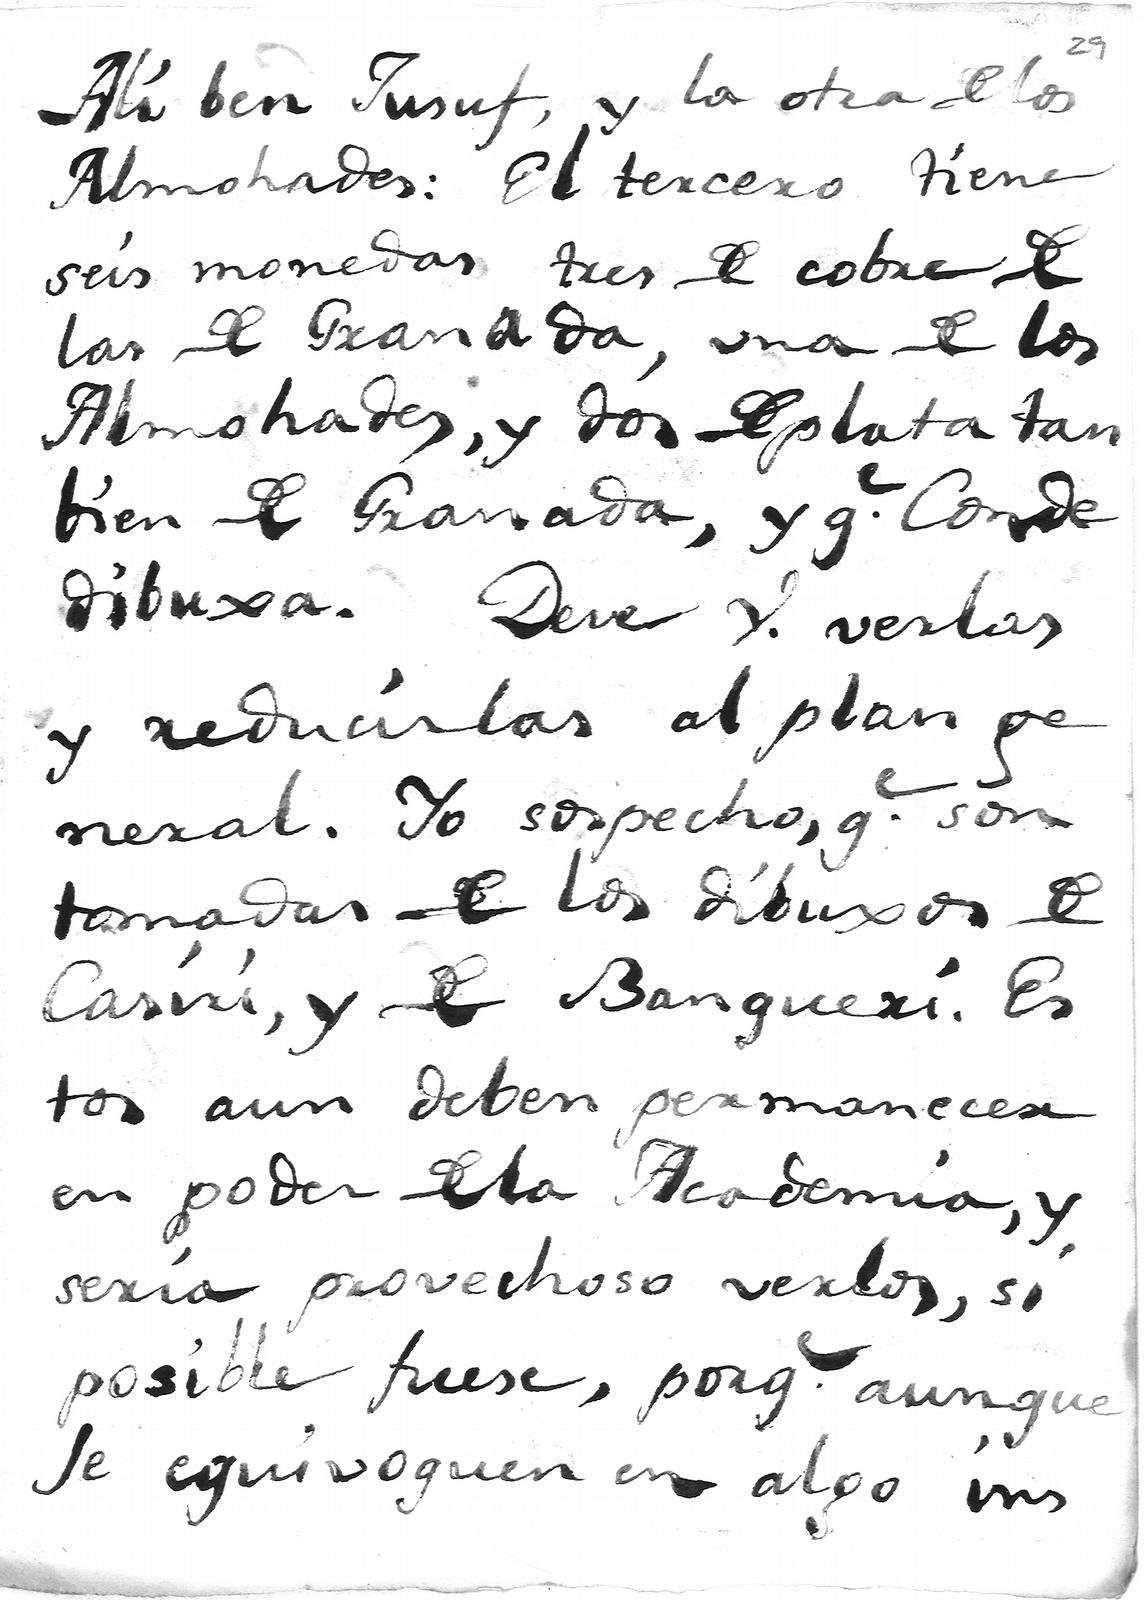 29
Alí ben Jusuf, y la otra de los
Almohades: El tercero tiene
seis monedas tres de cobre de
las de Granada, una de los
Almohades, y dos de plata tan
bien de Granada, y q.e Conde
dibuxa. Deve V. verlas
y reducirlas al plan ge
neral. Yo sospecho, q.e son
tomadas de los dibuxos de
Casiri, y de Banqueri. Es
tos aun deben permanecer
en poder de la Academia, y
sería provechoso verlos, si
posible fuese, porq.e aunque
se equivoquen en algo ins